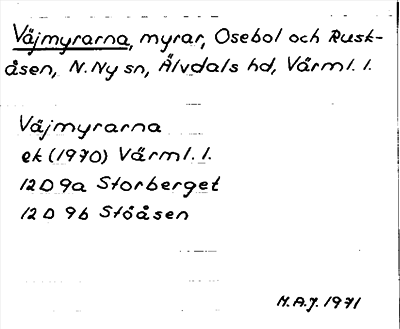 Väjmyrarna, myrar, Osebol och Rusk-
åsen, N. Ny sn, Älvdals hd, Värml. l.
Väjmyrarna
ek (1970) Värml. l.
12D 9a Storberget
12D 9b Stöåsen
H.A.J. 1971